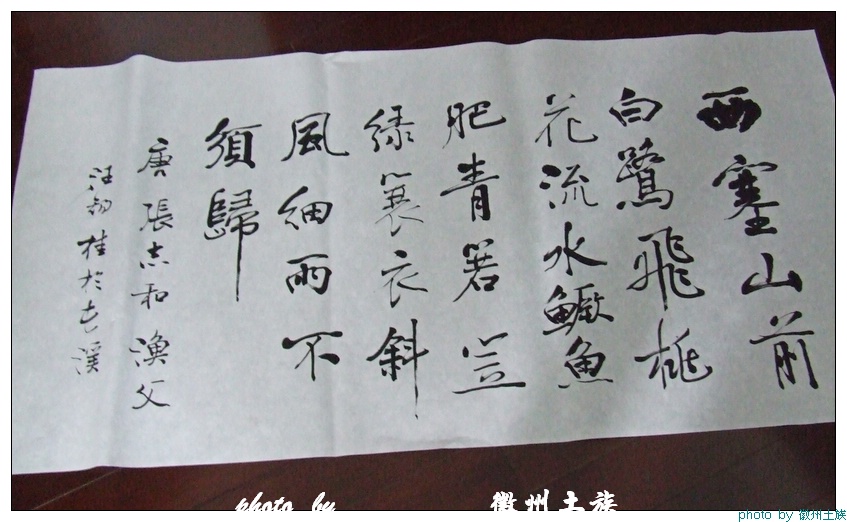 西塞山前
白鷺飛桃
花流水鱖魚
肥青箬笠
绿蓑衣斜
風细雨不
須歸
唐張志和漁父
汪桂於屯溪
photo by 徽州土族
photo by 徽州土族